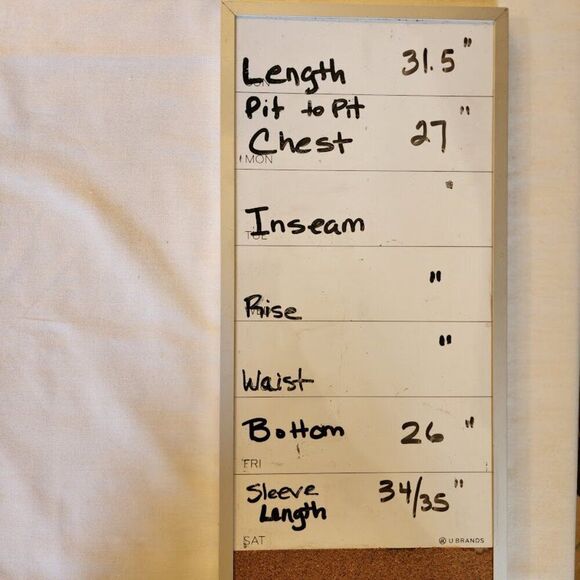 Length 31.5"
Pit to Pit
Chest 27"
MON
Inseam "
TUE
Rise "
Waist "
Bottom 26"
FRI
Sleeve
Length 34/35"
SAT U BRANDS